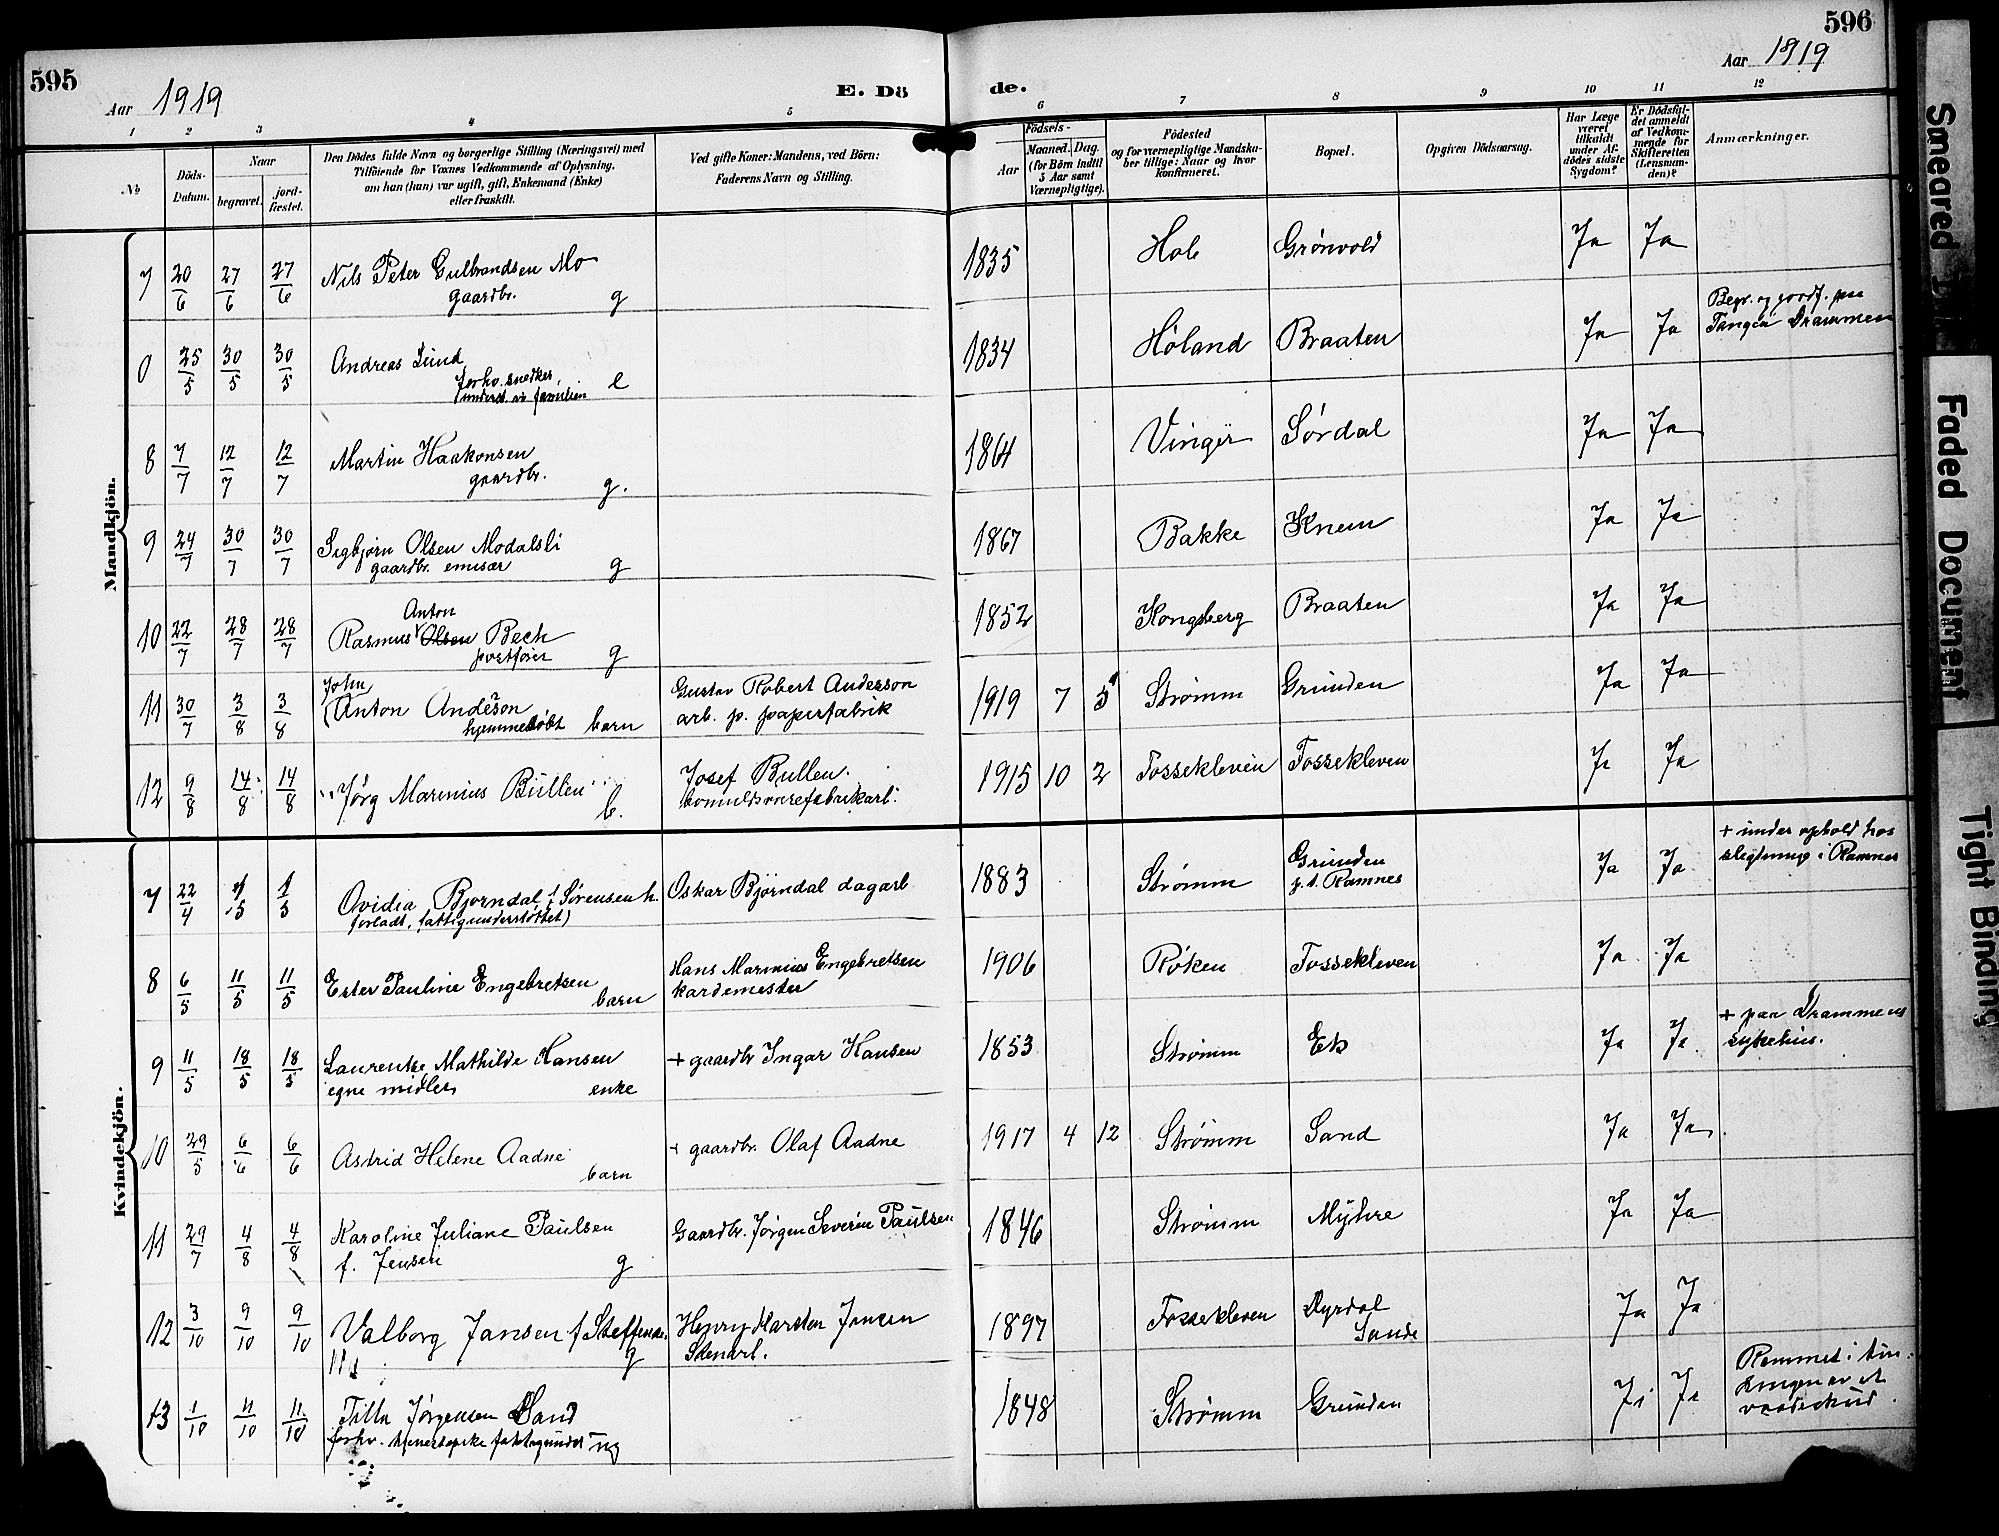 595
Aar 1919
E. Dö
de.
Aar 1919
596
1 2 3 4 5 6 7 8 9 10 11 12
No
Döds-
Datum.
Naar
begravet.
jord-
fæstet.
Den Dödes fulde Navn og borgerlige Stilling (Næringsvei) med
Tilföiende for Voxnes Vedkommende af Oplysning,
om han (hun) var ugift, gift, Enkemand (Enke)
eller fraskilt.
Ved gifte Koner: Mandens, ved Börn:
Faderens Navn og Stilling.
Födsels-
Aar
Maaned. Dag.
(for Börn indtil
5 Aar samt
Værnepligtige).
Födested
og for værnepligtige Mandska-
ber tillige: Naar og hvor
konfirmeret.
Bopæl.
Opgiven Dödsaarsag.
Har Læge
været
tilkaldt
under Af-
dödes sidste
Sygdom?
Er Dödsfal-
det anmeldt
af Vedkom-
mende for
Skifteretten
(Lensman-
den)?
Anmærkninger.
Mandkjön.
7 20/6 27/6 27/6 Nils Peter Gulbrandsen Mo 1835 Hob Grønvold Ja Ja
gaardbr. g
0 25/5 30/5 30/5 Andreas Lund 1834 Høland Braaten Ja Ja Begr. og jordf. paa
forhv. snedker e Tangen Drammen
underst. av familien
8 7/7 12/7 12/7 Martin Haakonsen 1864 Vinger Sørdal Ja Ja
gaardbr. g.
9 24/7 30/7 30/7 Sigbjørn Olsen Modalsli 1867 Bakke Knem Ja Ja
gaardbr. emisær g
10 22/7 28/7 28/7 Rasmus Anton Olsen Bech 1852 Kongsberg Braaten Ja Ja
postfører g
11 30/7 3/8 3/8 John Anton Andeson Gustav Robert Anderson 1919 7 5 Strømm Grunden Ja Ja
hjemmedøbt barn arb. p. papirfabrik
12 9/8 14/8 14/8 Jørg Marinius Bullen Josef Bullen 1915 10 2 Fossekleven Fossekleven Ja Ja
b. bomuldsvarefabrikarb.
Kvindekjön.
7 22/4 1/5 1/5 Ovidia Bjorndal, f. Sørensen h. Oskar Bjørndal dagarb 1883 Strømm Grunden Ja Ja + under ophold hos
forladt, fattigunderstøttet) p.t. Ramnes slegtninge i Ramnes
8 6/5 11/5 11/5 Ester Pauline Engebretsen Hans Marinius Engebretsen 1906 Røken Fossekleven Ja Ja
barn kardemester
9 11/5 18/5 18/5 Laurentze Mathilde Hansen + gaardbr Ingar Hansen 1853 Strømm Ek Ja Ja + paa Drammens
egne midler enke sykehus.
10 29/5 6/6 6/6 Astrid Helene Aadne + gaardbr. Olaf Aadne 1917 4 12 Strømm Sand Ja Ja
barn
11 29/7 4/8 4/8 Karoline Juliane Paulsen Gaardbr. Jørgen Severin Paulsen 1846 Strømm Myhre Ja Ja
f. Jensen g
12 3/10 9/10 9/10 Valborg Jansen f Steffense Henry Karsten Jansen 1897 Fossekleven Dyrdal Ja Ja
g Stenarb. Sande
13 1/10 11/10 11/10 Tilla Jørgensen Sand 1848 Strømm Grunden Ja Ja Rammet i tin-
forhv. tjenestepike fattigunderst ug dingen av et
vaadeskud
Smeared
Faded Document
Tight Binding